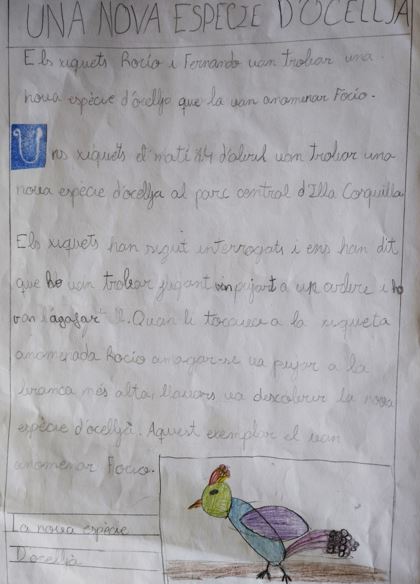 UNA NOVA ESPÈCIE D'OCELLJA
Els xiquets Rocio i Fernando van trobar una
nova espècie d'ocellja que la van anomenar Focio.
Uns xiquets el matí 24 d'abril van trobar una
nova espècie d'ocellja al parc central d'Illa Corquilla.
Els xiquets han sigut interrogats i ens han dit
que ho van trobar jugant pujant a un ardre i ho
van agafar. Quan li a la xiqueta
anomenada Rocio amagar-se va pujar a la
branca més alta, llavors va descobrir la nova
espècie d'ocelljà. Aquest exemplar el van
anomenar Focio.
La nova espècie
D'ocelljà